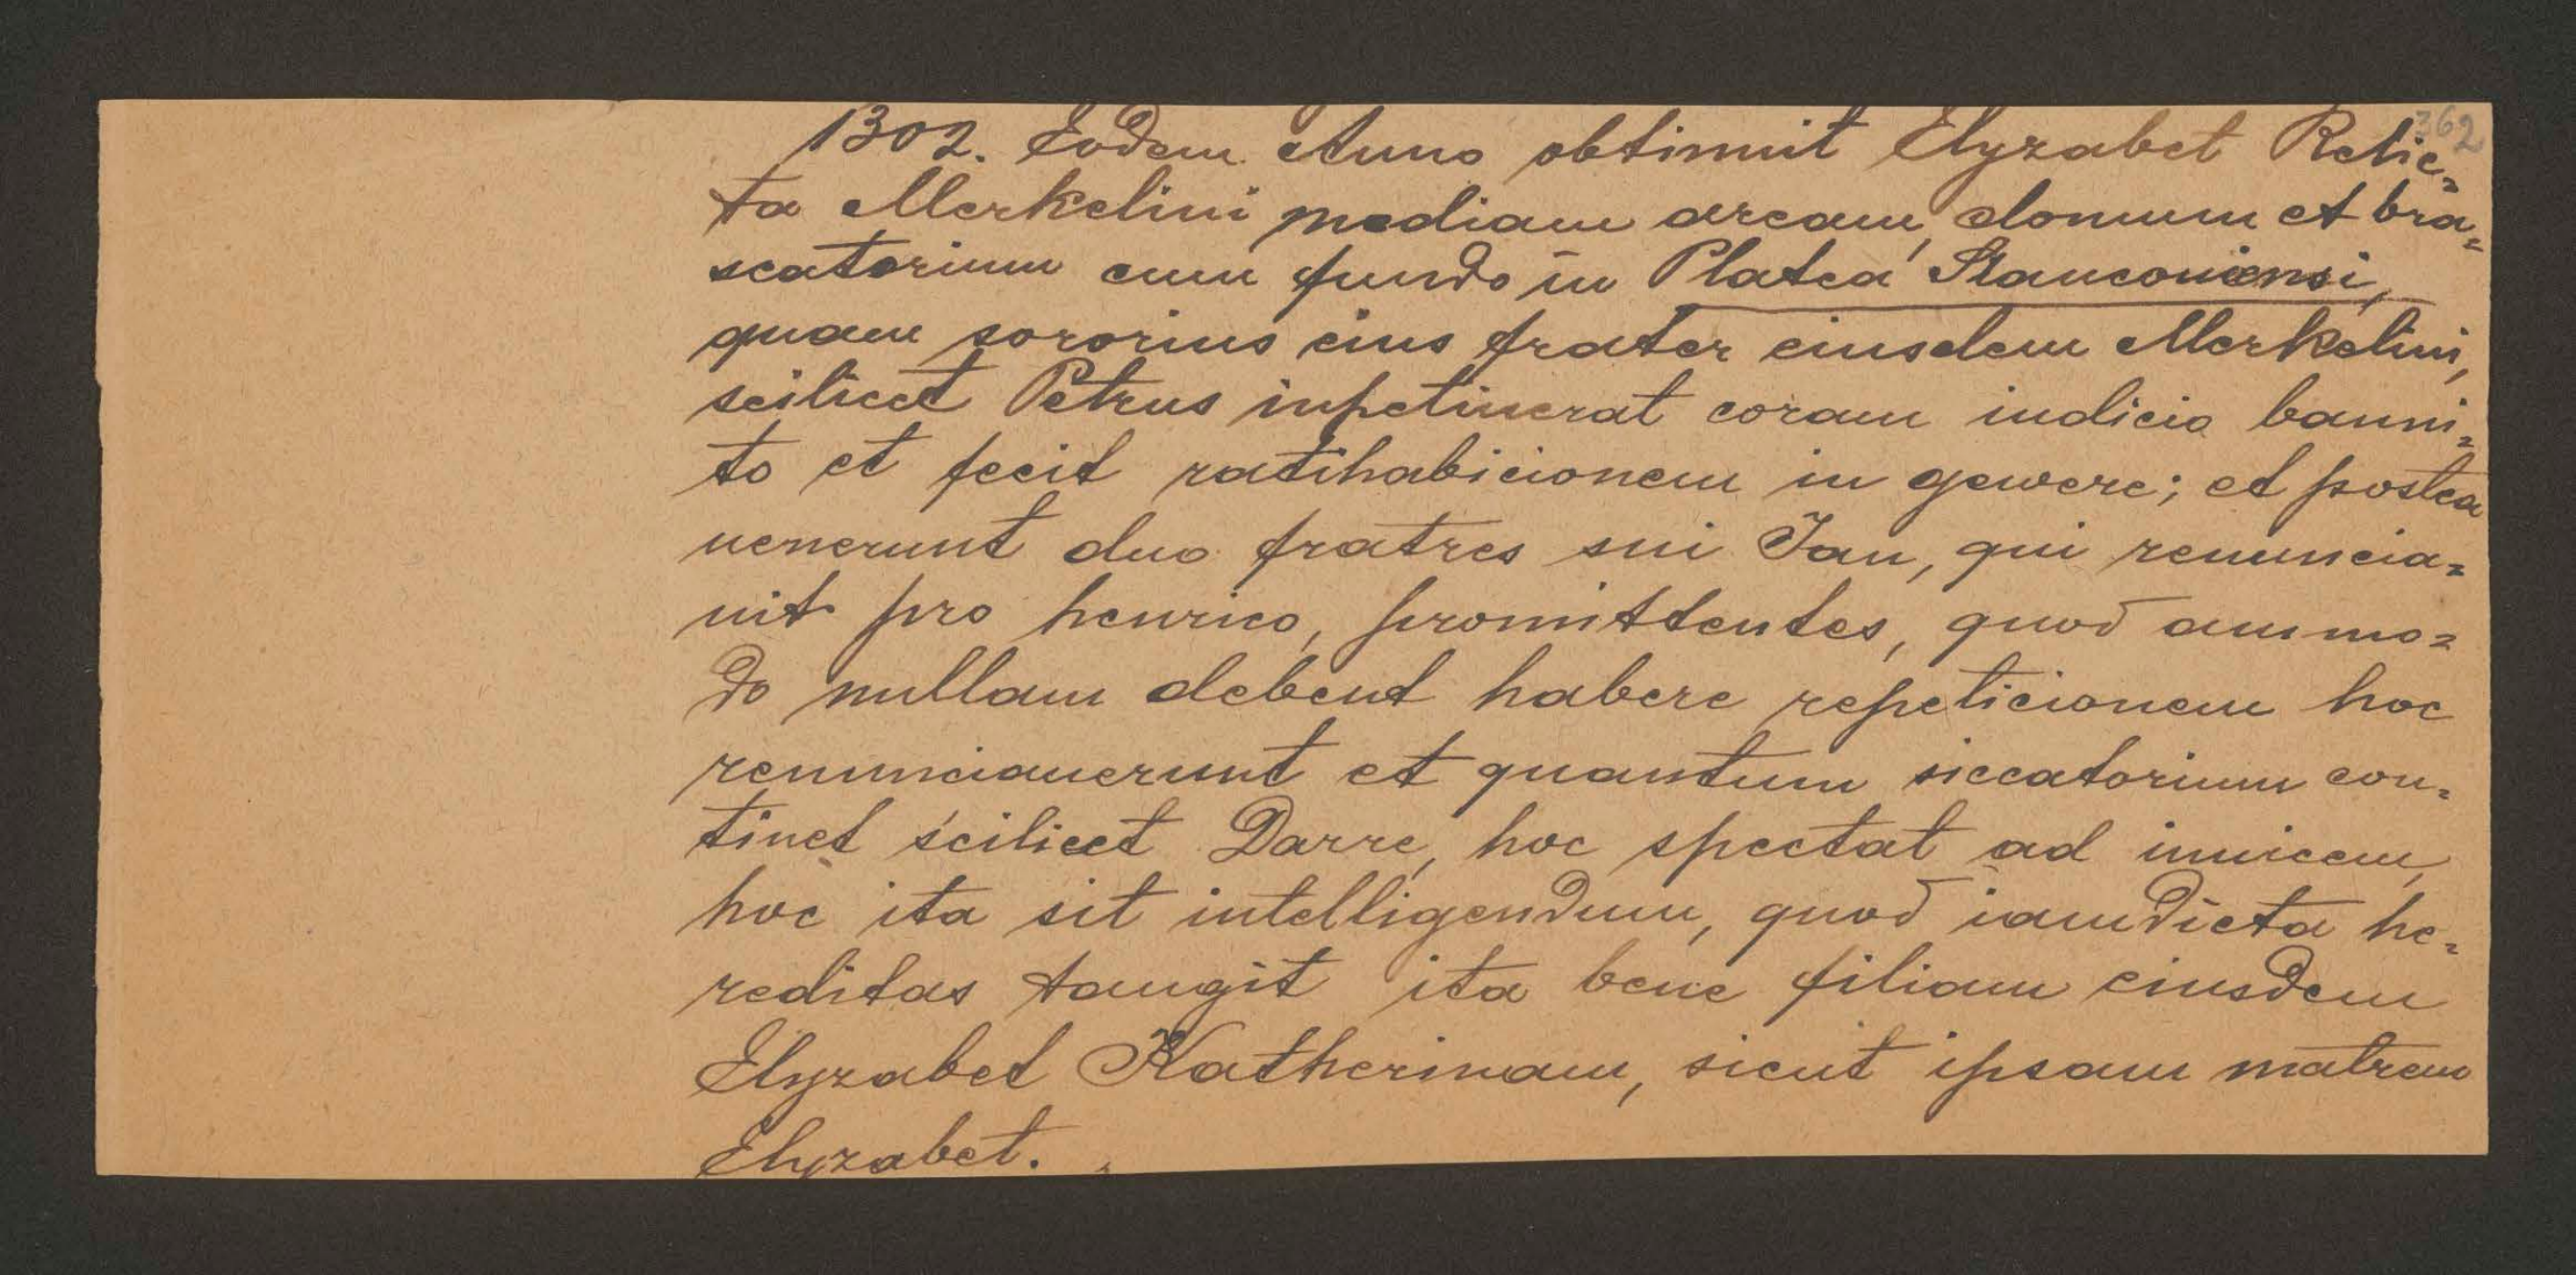 362
1302. Eodem Anno obtinuit Elyzabet Relic-
ta Merkelini mediam aream, domum et bra-
scatorium cum fundo in Platea Slauconiensi,
quam sororius eius frater eiusdem Merkelini,
scilicet Petrus inpetiuerat coram iudicio banni-
to et fecit ratihabicionem in gewere; et postea
uenerunt duo fratres sui Jan, qui renuncia-
uit pro henrico, promittentes, quod ammo-
do nullam debent habere repeticionem hoc
renunciauerunt et quantum siccatorium con-
tinet scilicet Darre, hoc spectat ad inuicem,
hoc ita sit intelligendum, quod iamdicta he-
reditas tangit ita bene filiam eiusdem
Elyzabet Katherinam, sicut ipsam matrem
Elyzabet.